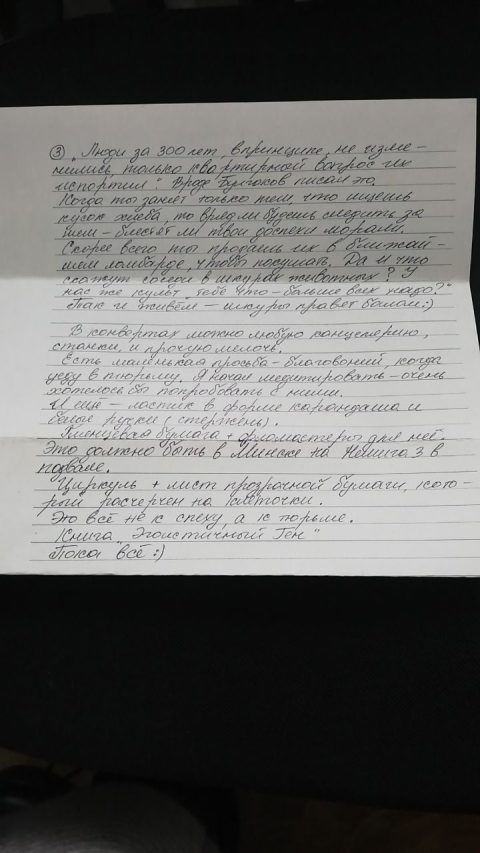 ③ „Люди за 300 лет, впринципе, не изме-
нились, только квартирный вопрос их
испортил". Вроде Булгаков писал это.
Когда ты занят только тем, что ищешь
кусок хлеба, то врядли будешь следить за
тем – блестят ли твои доспехи морали.
Скорее всего ты продашь их в ближай-
шем ломбарде, чтоб покушать. Да и что
скажут соседи в шкурах животных? У
нас же культ „тебе что – больше всех надо?"
Так и живём – шкуры правят балом:)
В конвертах можно любую канцелярию,
станки, и прочую мелочь.
Есть маленькая просьба – благовоний, когда
уеду в тюрьму. Я начал медитировать – очень
хотелось бы попробовать с ними.
И ещё – ластик в форме карандаша и
белые ручки (стержень).
Глянцевая бумага + фломастеры для неё.
Это должно быть в Минске на Немига 3 в
подвале.
Циркуль + лист прозрачной бумаги, кото-
рый расчерчен на клеточки.
Это всё не к спеху, а к тюрьме.
Книга „Эгоистичный Ген"
Пока всё :)